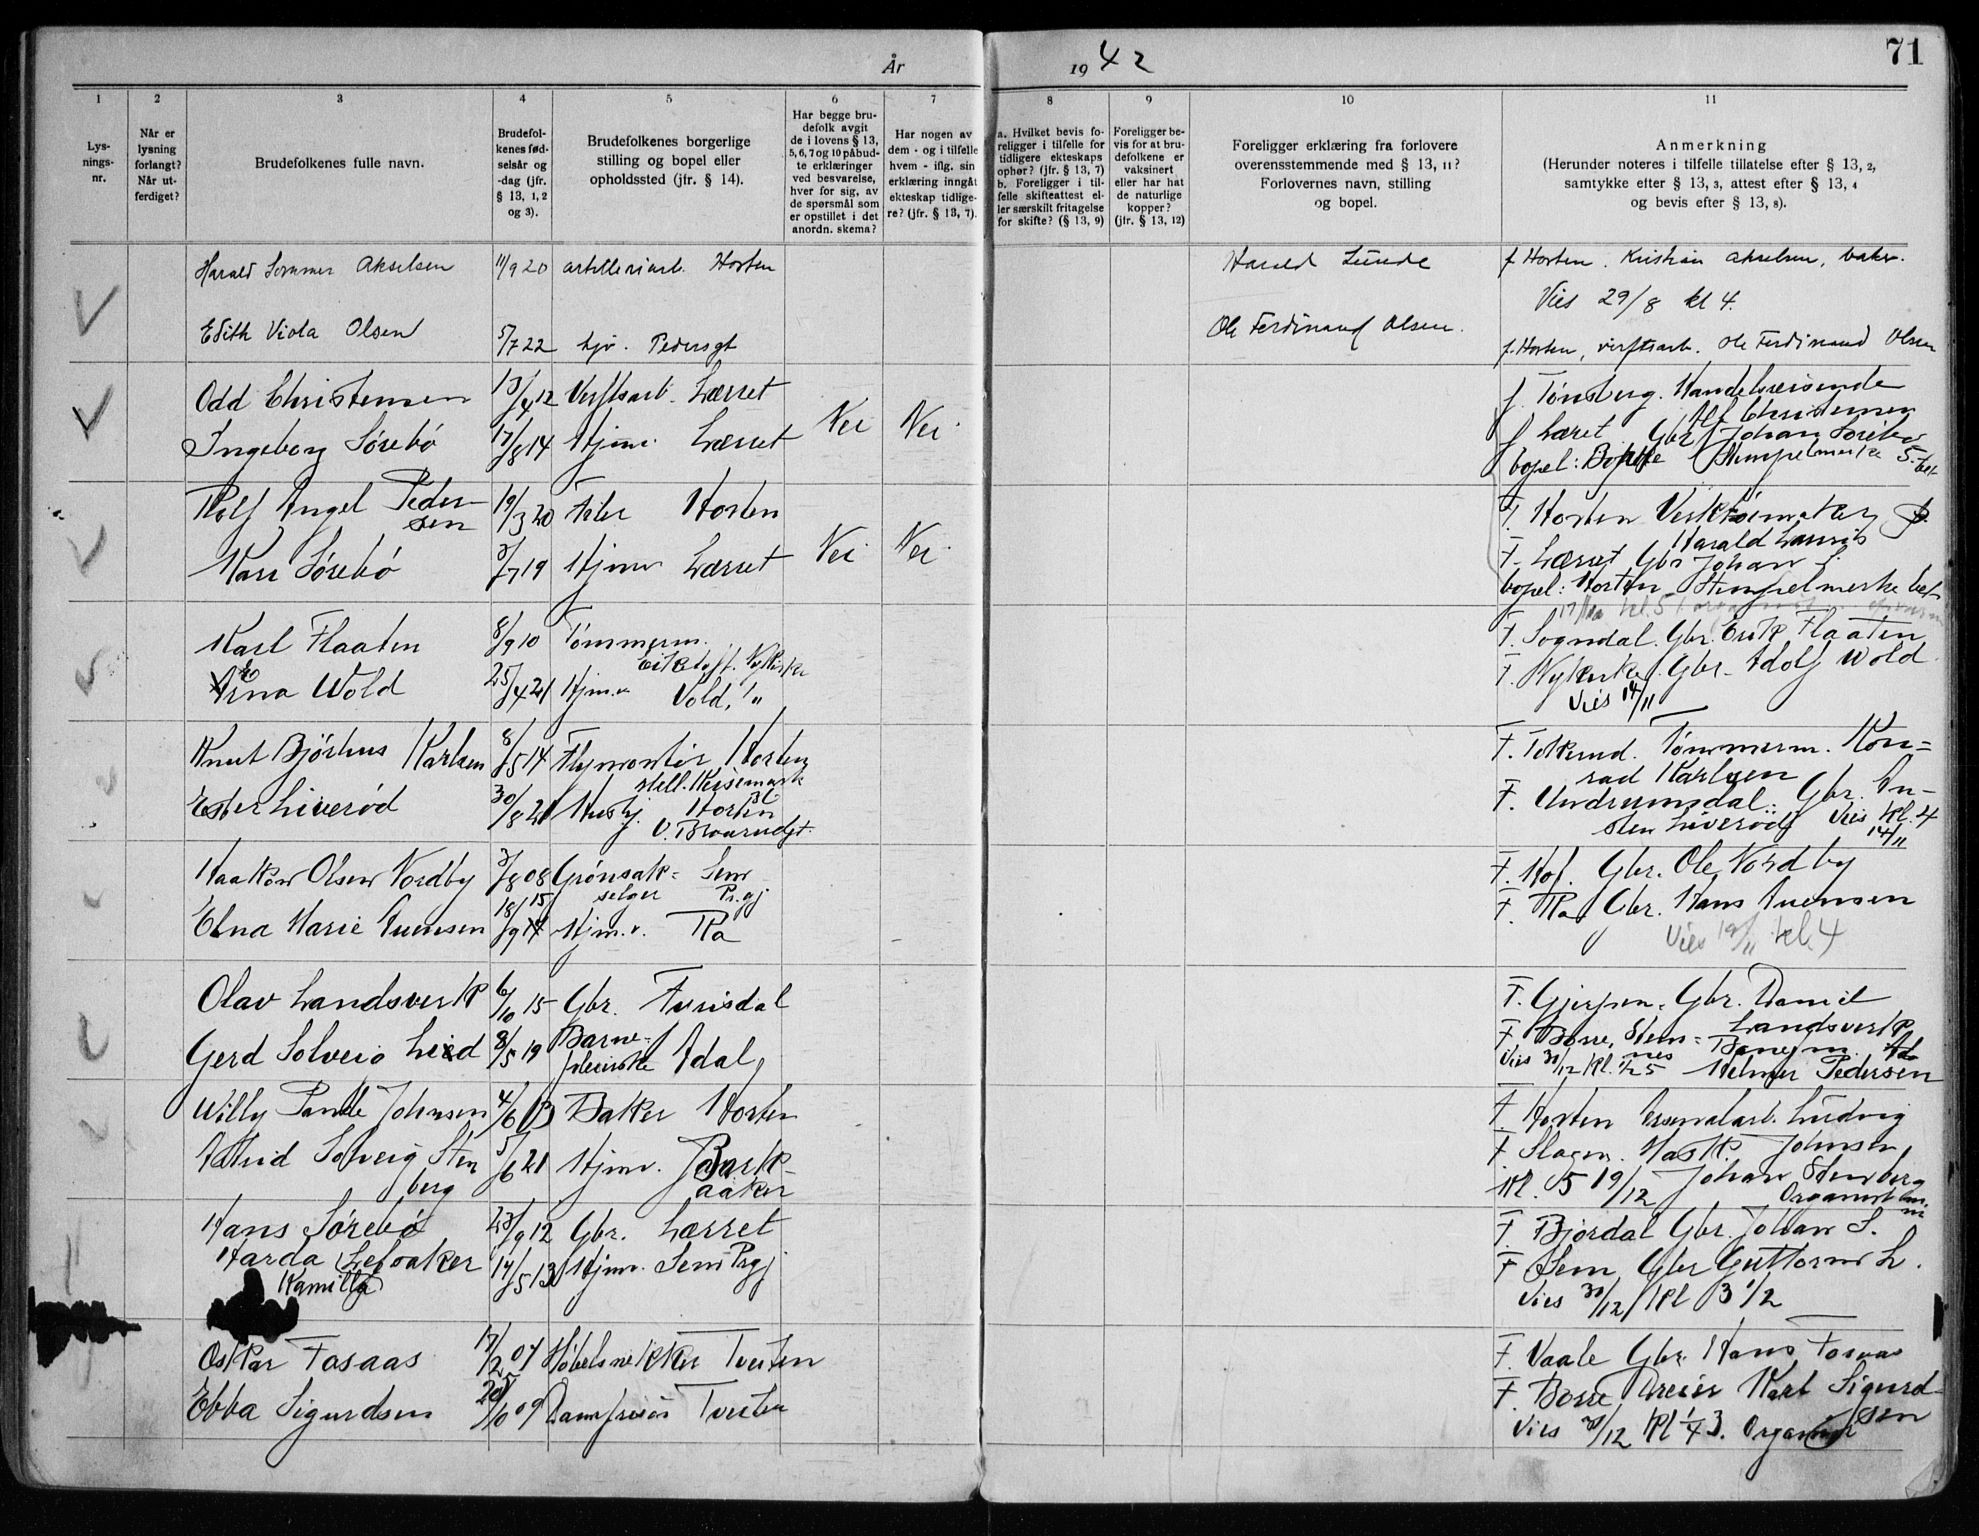 År 1942
71
1 2 3 4 5 6 7 8 9 10 11
Lys-
nings-
nr.
Når er
lysning
forlangt?
Når ut-
ferdiget?
Brudefolkenes fulle navn.
Brudefol-
kenes fød-
selsår og
-dag (jfr.
§ 13, 1, 2
og 3).
Brudefolkenes borgerlige
stilling og bopel eller
opholdssted (jfr. § 14).
Har begge bru-
defolk avgit
de i lovens § 13,
5, 6, 7 og 10 påbud-
te erklæringer
ved besvarelse,
hver for sig, av
de spørsmål som
er opstillet i det
anordn. skema?
Har nogen av
dem - og i tilfelle
hvem - iflg. sin
erklæring inngåt
ekteskap tidlige-
re? (jfr. § 13, 7).
a. Hvilket bevis fo-
religger i tilfelle for
tidligere ekteskaps
ophør? (jfr. § 13, 7)
b. Foreligger i til-
felle skifteattest el-
ler særskilt fritagelse
for skifte? (§ 13, 9)
Foreligger be-
vis for at bru-
defolkene er
vaksinert
eller har hat
de naturlige
kopper?
(jfr. § 13, 12)
Foreligger erklæring fra forlovere
overensstemmende med § 13, 11?
Forlovernes navn, stilling
og bopel.
Anmerkning
(Herunder noteres i tilfelle tillatelse efter § 13, 2,
samtykke efter § 13, 3, attest efter § 13, 4
og bevis efter § 13, 8).
Harald Sommer Akselsen 11/9 20 artilleriarb. Horten Harald Lunde f. Horten. Kristian Akselsen, baker.
Vies 29/8 kl 4.
Edith Viola Olsen 5/7 22 hjv. Pedersgt Ole Ferdinand Olsen. f. Horten, verftsarb. Ole Ferdinand Olsen
Odd Christensen 13/4 12 Verftsarb. Lærret Nei Nei f. Tønsberg. Handelsreisende
Alf Christensen
Ingeborg Sørebø 17/8 14 Hjmv. Lærret f Læret Gbr Johan Sørebø
bopel: Stempelmerke 5.- bet
Rolf Angel Peder-
sen 19/3 20 Filer Horten Nei Nei F. Horten Verktøimaker
Harald Lauris
Kari Sørebø 3/7 19 Hjmv Lærret F. Lærret Gbr Johan S.
bopel: Horten Stempelmerke bet
Karl Flaaten 8/9 10 Tømmerm. F. Sogndal. Gbr. Erik Flaaten
Eikstoff. Nykirke
Wold 25/4 21 Hjm.v Vold, " F. Nykirke Gbr. Adolf Wold
Vies 14/11
Knut Bjørhus Karlsen 8/5 14 Flymontør Horten F. Tokerud. Tømmerm. Kon=
rad Karlsen
Ester Liverød 30/8 21 Hushj. Horten F. Undrumsdal: Gbr. An-
V. Braarudgt. sten Liverød Vies kl. 4
14/11
Haakon Olsen Nordby 3/8 08 Grønsak= Sem
selger Pr.gj F. Hof. Gbr. Ole Nordby
Elna Marie Auensen 18/9 15 Hjm.v. Ra F. Ra Gbr. Hans Auensen
Vies 19/11 kl. 4
Olav Landsverk 6/10 15 Gbr. Fyrisdal F. Gjerpen. Gbr. Daniel
Landsverk
Gerd Solveig Lied 8/5 19 Barne-
pleierske Adal F Borre, Sten=
nes Banefm.
Vies 31/12 Kl. 1/2 5 Helmer Pedersen
Willy Johnsen 4/6 13 Baker Horten F. Horten Arsenalarb. Ludvig
Johnsen
Astrid Solveig Sten
berg 5/6 21 Hjmv. Bark-
aaker F Slagen. Mask.
Kl. 5 19/12 Johan Stenberg
Hans Sørebø 23/9 12 Gbr. Lærret F. Bjørdal Gbr. Johan S.
Harda Lefsaker 14/5 13 Hjmv. Sem Prgj F Sem Gbr Guttorm L.
Kamilla Vies 30/12 Kl 3 1/2
Oskar Fosaas Møbelsnekker Tveiten F. Vaale Gbr. Hans Fosaas
Ebba Sigurdsen Damefrisør Tveiten F. Borre Dreier Karl Sigurd
sen
Vies 30/12 Kl 1/4 3. Organist